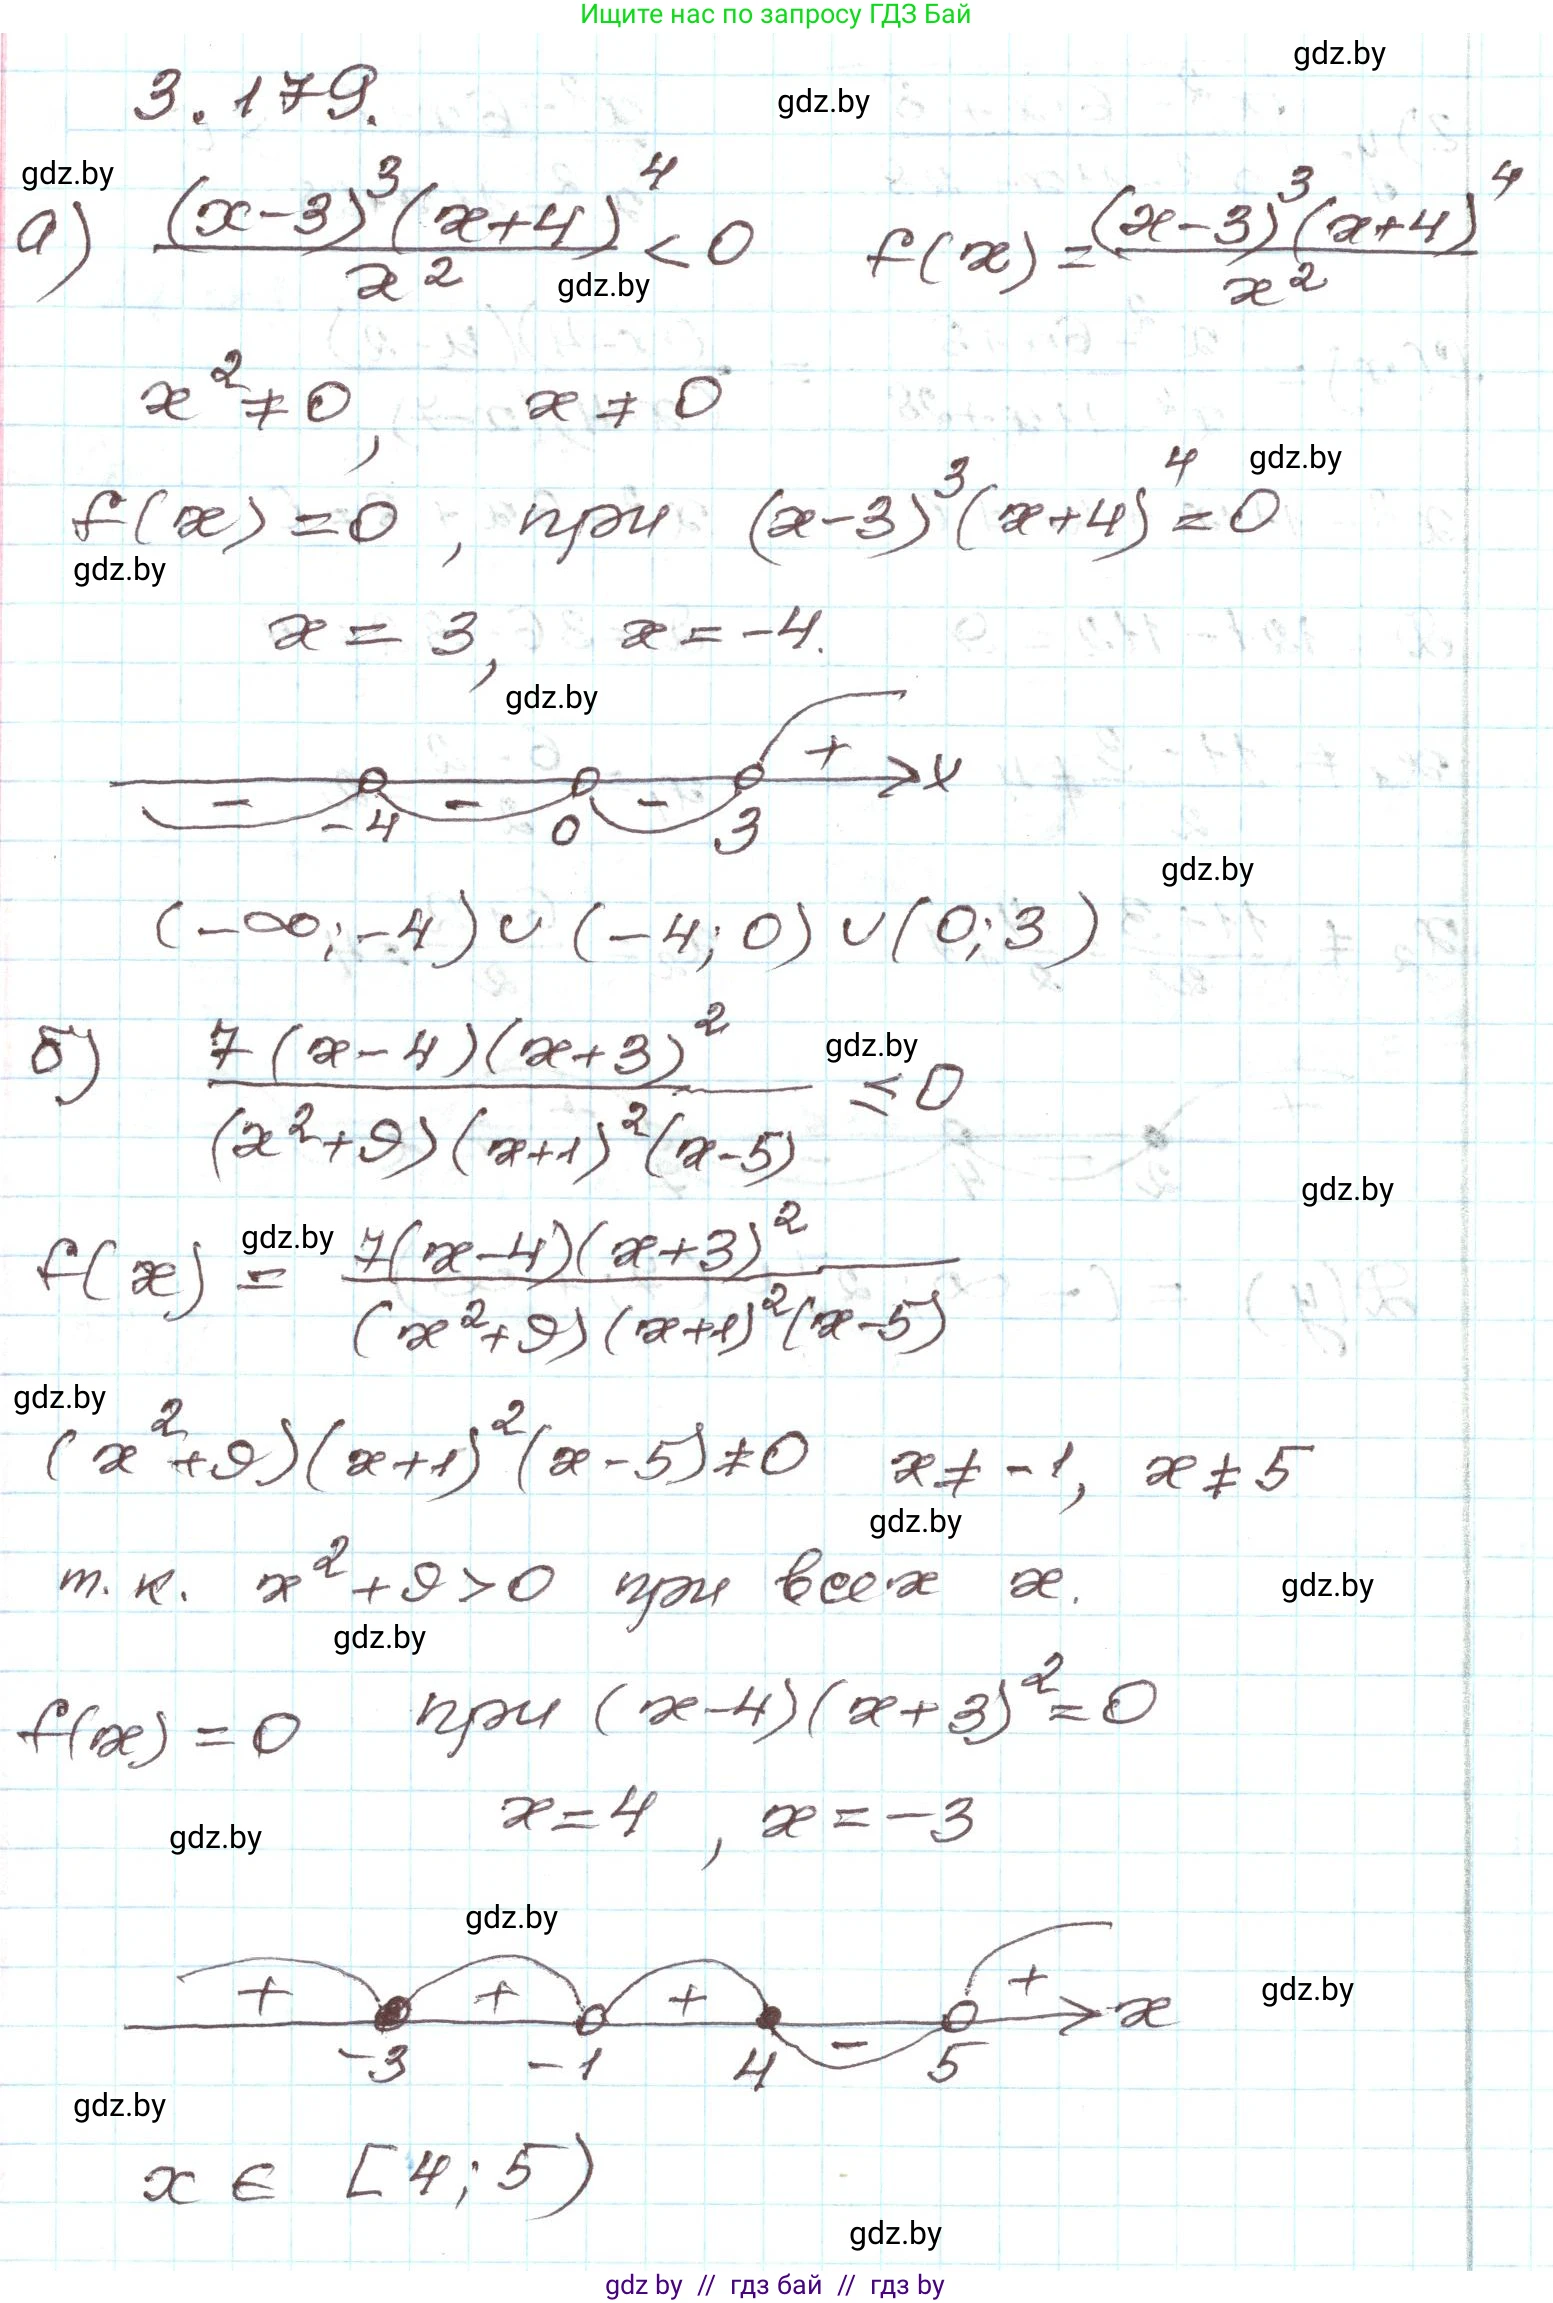 Ищите нас по запросу ГДЗ Бай
gdz.by
3.179.
gdz.by
gdz.by
а) (x-3)³(x+4)⁴ / x² < 0    f(x) = (x-3)³(x+4)⁴ / x²
gdz.by
x² ≠ 0, x ≠ 0
gdz.by
f(x) = 0, при (x-3)³(x+4)⁴ = 0
gdz.by
x = 3, x = -4.
gdz.by
- - - + x
-4 0 3
gdz.by
(-∞; -4) ∪ (-4; 0) ∪ (0; 3)
б) 7(x-4)(x+3)² / (x²+9)(x+1)²(x-5) ≤ 0
gdz.by
gdz.by
f(x) = 7(x-4)(x+3)² / (x²+9)(x+1)²(x-5)
gdz.by
gdz.by
(x²+9)(x+1)²(x-5) ≠ 0 x ≠ -1, x ≠ 5
gdz.by
т.к. x²+9>0 при всех x.
gdz.by
gdz.by
f(x) = 0 при (x-4)(x+3)² = 0
x = 4, x = -3
gdz.by
gdz.by
+ + + - + x
gdz.by
-3 -1 4 5
gdz.by
x ∈ [4; 5)
gdz.by
gdz by // гдз бай // гдз by